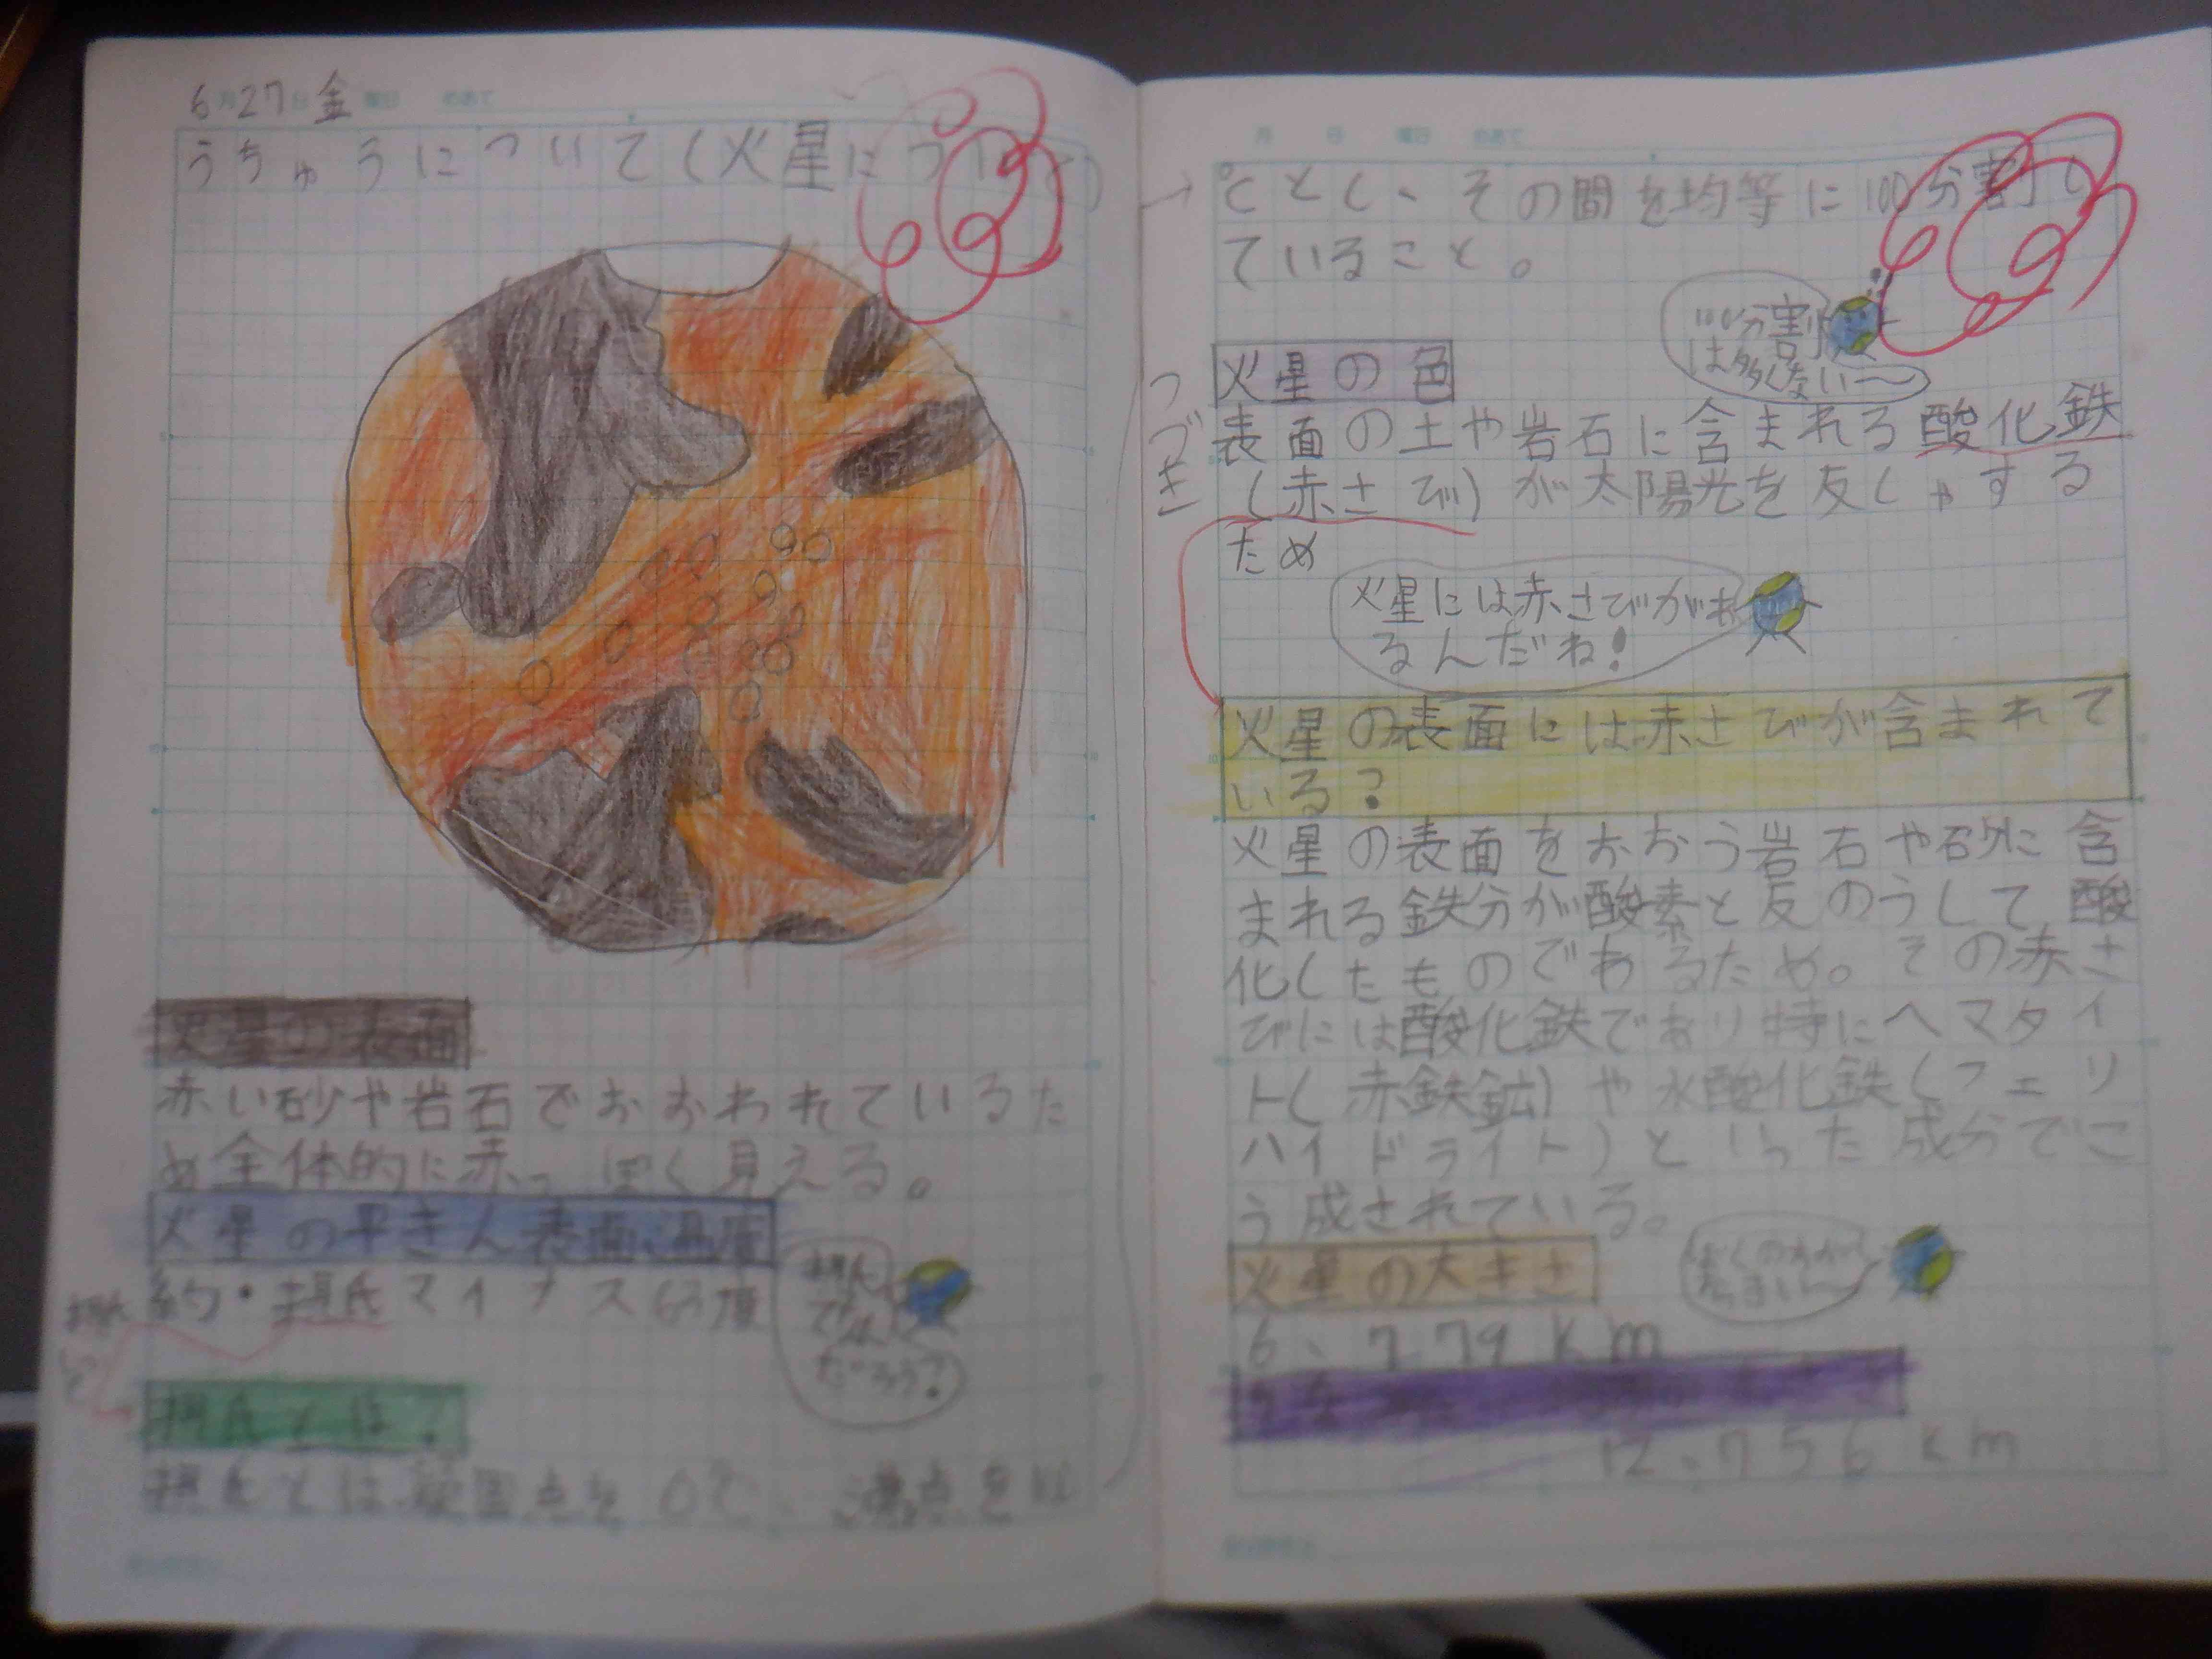 6月27日金曜日 めあて
うちゅうについて(火星について)
火星の表面
赤い砂や岩石でおおわれているた
め全体的に赤っぽく見える。
火星の平きん表面温度
約・摂氏マイナス63度
摂氏
てなん
だろう?
摂氏とは?
摂氏とは凝固点を0℃、沸点を100
月 日 曜日 めあて
→℃とし、その間を均等に100分割し
ていること。
100分割
は多くない〜
つづき
火星の色
表面の土や岩石に含まれる酸化鉄
(赤さび)が太陽光を反しゃする
ため
火星には赤さびがあ
るんだね!
火星の表面には赤さびが含まれて
いる?
火星の表面をおおう岩石や砂に含
まれる鉄分が酸素と反のうして酸
化したものであるため。その赤さ
びには酸化鉄であり特にヘマタイ
ト(赤鉄鉱)や水酸化鉄(フェリ
ハイドライト)といった成分でこ
う成されている。
火星の大きさ
ぼくのほうが
6、779km
12、756km